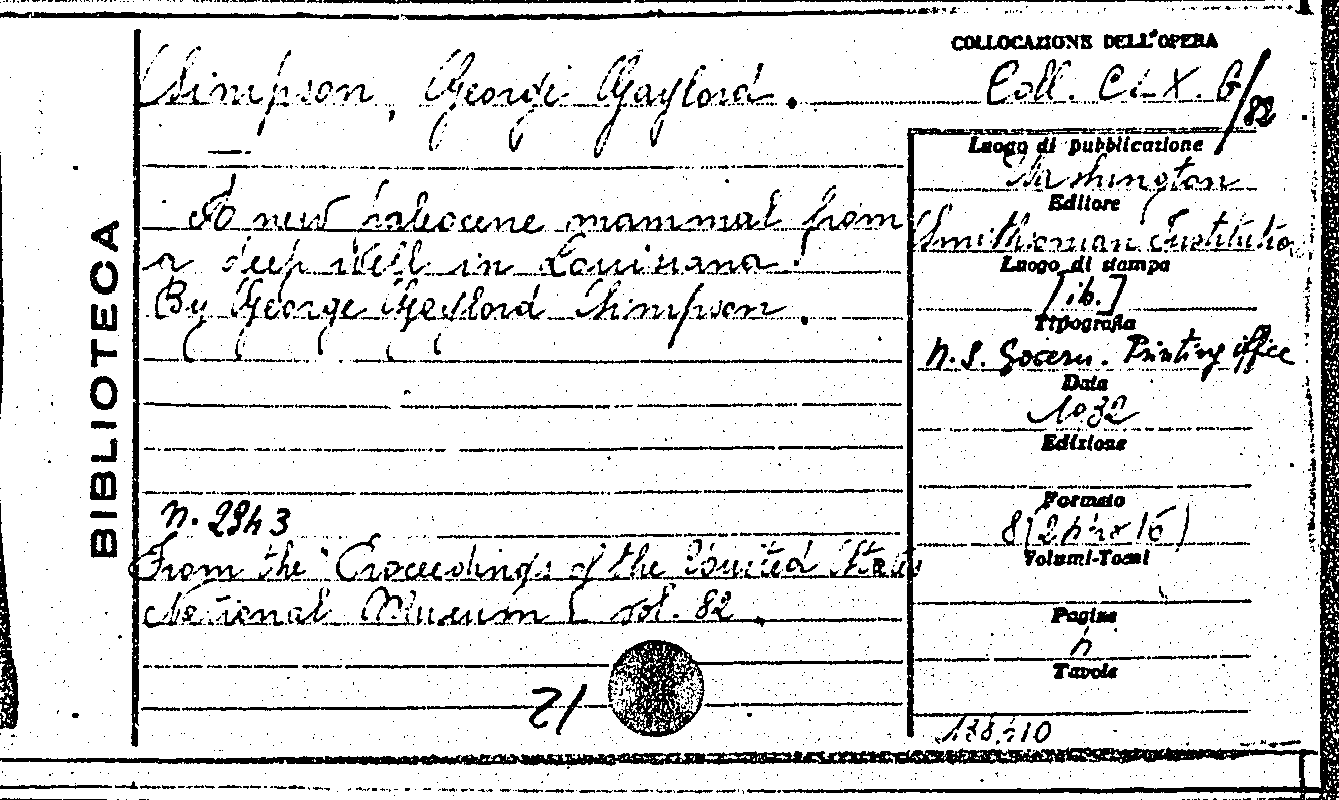 COLLOCAZIONE DELL'OPERA
Simpson, George Gaylord.
Coll. CLX. G/82
Luogo di pubblicazione
Washington
Editore
Smithsonian Institution
Luogo di stampa
[ib.]
Tipografia
Govern. Printing office
Data
1932
Edizione
Formato
Volumi-Tomi
Pagine
Tavole
BIBLIOTECA
A new paleocene mammal from
a deep well in Louisiana.
By George Gaylord Simpson.
n. 2943
From the "Proceedings of the United States
National Museum", vol. 82.
21